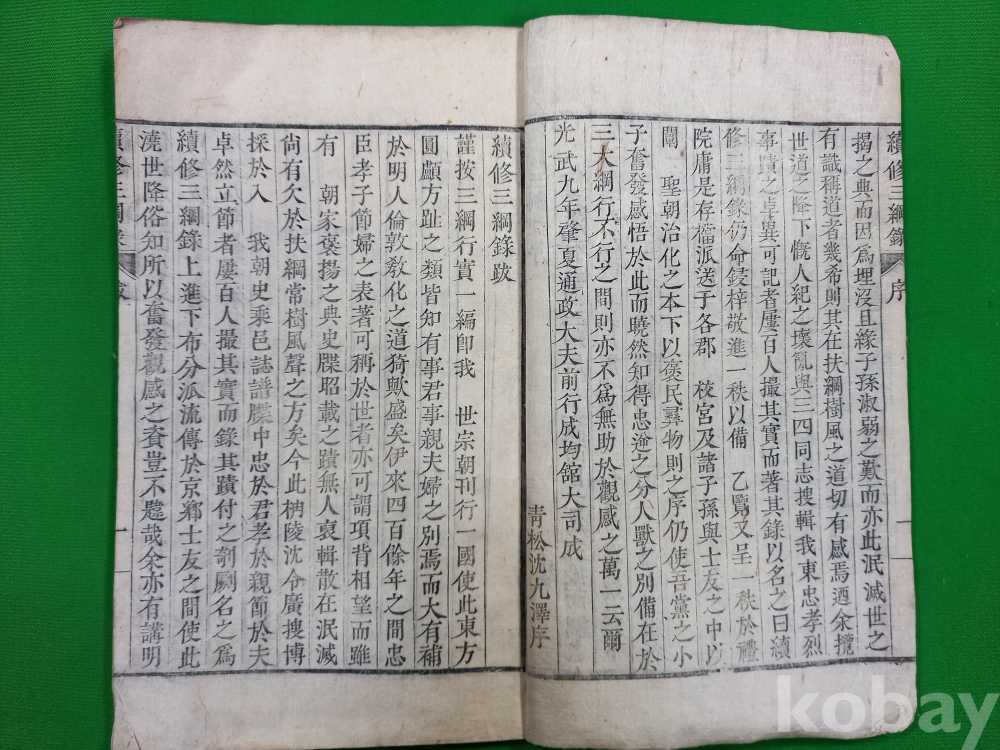 續修三綱錄 序 二
揭之典而因爲埋沒且緣子孫淑弱之歎而亦此泯滅世之
有識稱道者幾希則其在扶綱樹風之道切有感焉迺余攬
世道之降下慨人紀之壞亂與三四同志搜輯我東忠孝烈
事蹟之卓異可記者屢百人撮其實而著其錄以名之曰續
修三綱錄仍命鋟梓敬進一秩以備 乙覽又呈一秩於禮
院庸是存檔派送于各郡 校宮及諸子孫與士友之中以
闡 聖朝治化之本下以褒民彛物則之序仍使吾黨之小
子奮發感悟於此而曉然知得忠逆之分人獸之別備在於
三大綱行不行之間則亦不爲無助於觀感之萬一云爾
光武九年肇夏通政大夫前行成均館大司成
靑松沈九澤序
續修三綱錄跋
謹按三綱行實一編卽我 世宗朝刊行一國使此東方
圓顱方趾之類皆知有事君事親夫婦之別焉而大有補
於明人倫敦敎化之道猗歟盛矣伊來四百餘年之間忠
臣孝子節婦之表著可稱於世者亦可謂項背相望而雖
有 朝家褒揚之典史牒昭載之蹟無人裒輯散在泯滅
尙有欠於扶綱常樹風聲之方矣今此柟陵沈公廣搜博
採於入 我朝史乘邑誌譜牒中忠於君孝於親節於夫
卓然立節者屢百人撮其實而錄其蹟付之剞劂名之爲
續修三綱錄上進下布分派流傳於京鄕士友之間使此
澆世降俗知所以奮發觀感之資豈不韙哉余亦有講明
續修三綱錄 跋 一
kobay